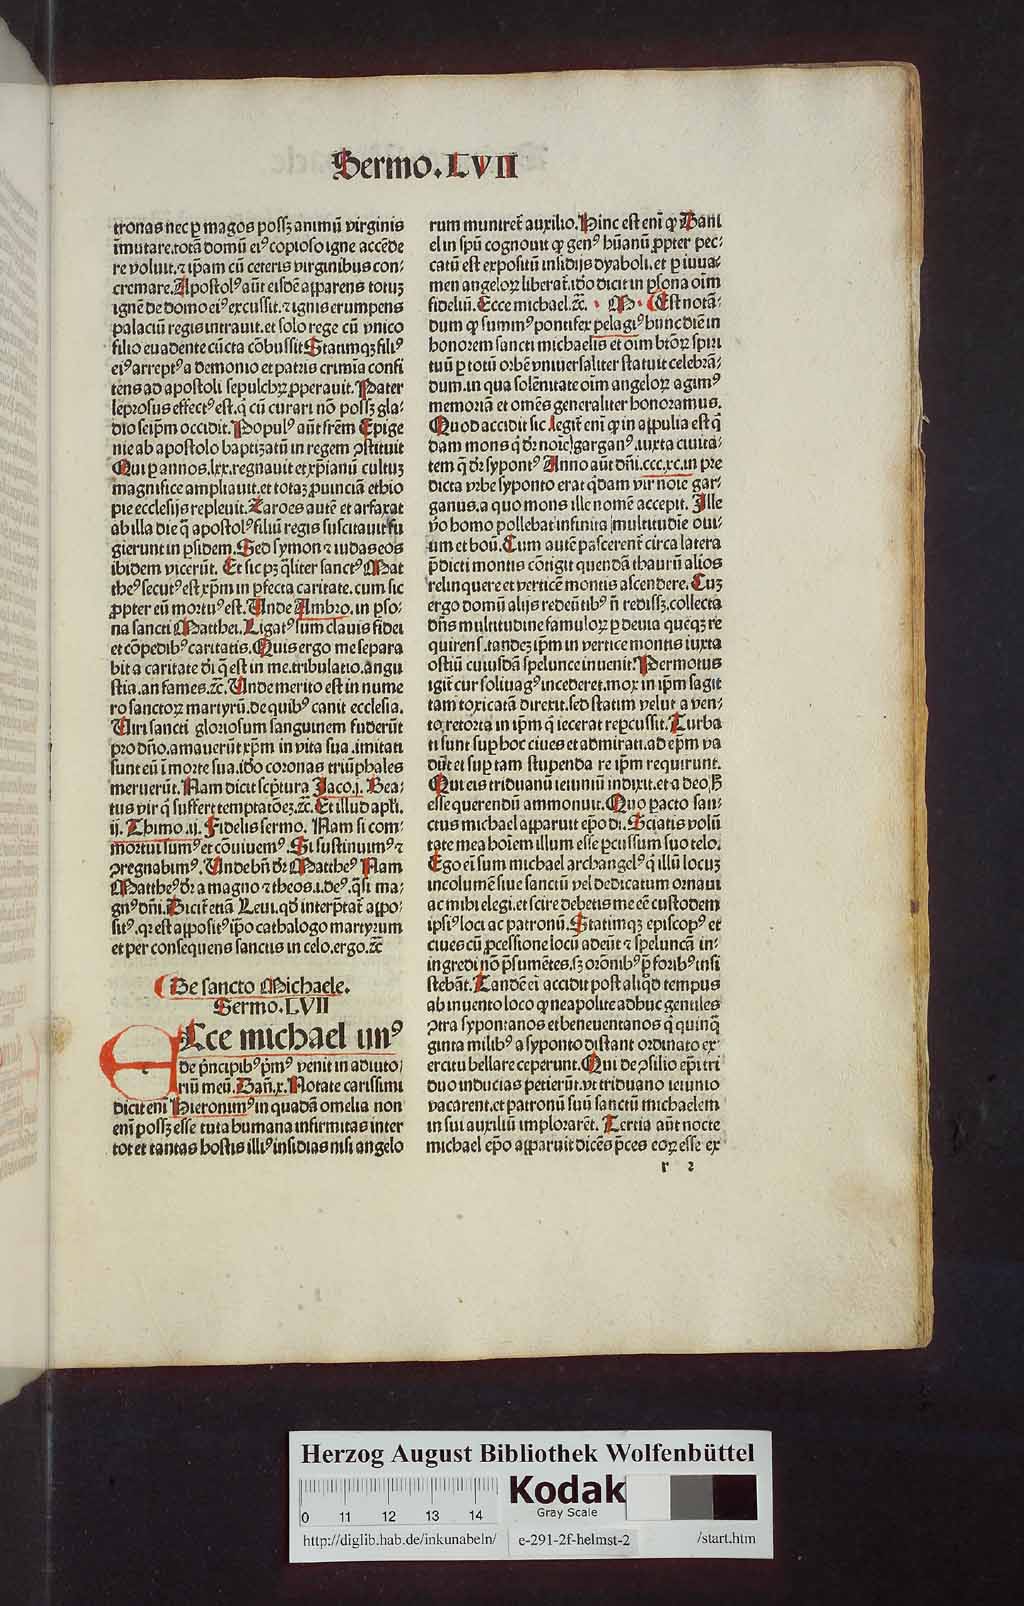 Sermo.LVII
tronas nec ꝑ magos possꝫ animū virginis
īmutare.totā domū ei⁹ copioso igne accēde
re voluit.⁊ ip̄am cū ceteris virginibus con-
cremare.Apostol⁹ aūt eisdē apparens totuꝫ
ignē de domo ei⁹ excussit.⁊ ignis erumpens
palaciū regis intrauit.et solo rege cū vnico
filio euadente cūcta cōbussit Statimqꝫ fili⁹
ei⁹ arrept⁹ a demonio et patris crimīa confi
tens ad apostoli sepulchꝝ ꝓperauit.Pater
leprosus effect⁹ est.q̄ cū curari nō possꝫ gla-
dio seip̄m occidit.Popul⁹ aūt frēm Epige
nie ab apostolo baptizatū in regem ꝯstituit
Qui ꝑ annos.lxx.regnauit et xp̄ianū cultuꝫ
magnifice ampliauit.et totaꝫ ꝓuinciā ethio
pie ecclesijs repleuit.Zaroes autē et arfaxat
ab illa die q̄ apostol⁹ filiū regis suscitauit fu
gierunt in ꝑsidem.Sed symon ⁊ iudas eos
ibidem vicerūt. Et sic pꝫ q̄liter sanct⁹ Mat
the⁹ secut⁹ est xp̄m in ꝑfecta caritate.cum sic
ꝓpter eū mortu⁹ est.Vnde Ambro.in ꝑso-
na sancti Matthei.Ligat⁹ sum clauis fidei
et cōpedib⁹ caritatis.Quis ergo me separa
bit a caritate dī q̄ est in me.tribulatio.angu
stia.an fames.⁊c̄.Vnde merito est in nume
ro sanctoꝝ martyrū.de quib⁹ canit ecclesia.
Viri sancti gloriosum sanguinem fuderūt
pro dn̄o.amauerūt xp̄m in vita sua.imitati
sunt eū ī morte sua.iđo coronas triūphales
meruerūt. Nam dicit scp̄tura Jaco.j. Bea-
tus vir q̄ suffert temptatōeꝫ.⁊c̄.Et illud apl̄i.
ij. Thimo.ij. Fidelis sermo. Nam si com-
mortui sum⁹ et cōuiuem⁹.Si sustinuim⁹ ⁊
ꝯregnabim⁹.Vnde bn̄ dr̄ Matthe⁹ Nam
Matthe⁹ dr̄ a magno ⁊ theos.i.de⁹.q̄si ma-
gn⁹ dn̄i.Dicit̄ etiā Leui.qđ interp̄tat̄ appo-
sit⁹.qꝛ est apposit⁹ ip̄o cathalogo martyrum
et per consequens sanctus in celo.ergo.⁊c̄
De sancto Michaele.
Sermo.LVII
ECce michael vn⁹
de p̄ncipib⁹ p̄m⁹ venit in adiuto/
riū meū.Dan̄.x.Notate carissimi
dicit enī Hieronim⁹ in quadā omelia non
enī possꝫ esse tuta humana infirmitas inter
tot et tantas hostis illi⁹ insidias nisi angelo
rum muniret̄ auxilio.Hinc est enī ꝙ Dani
el in sp̄u cognouit ꝙ gen⁹ hūanū ꝓpter pec-
catū est expositū insidijs dyaboli.et ꝑ iuua-
men angeloꝝ liberat̄.iđo dicit in ꝑsona oīm
fideliū.Ecce michael.⁊c̄. · M · Est notā-
dum ꝙ summ⁹ pontifex pelagi⁹ hunc diē in
honorem sancti michaelis et oīm btōꝝ spiri
tuū ꝑ totū orbē vniuersaliter statuit celebrā-
dum.in qua solēnitate oīm angeloꝝ agim⁹
memoriā et omēs generaliter honoramus.
Quod accidit sic.legit̄ enī ꝙ in appulia est q̄
dam mons q̄ dr̄ noīe gargan⁹.iuxta ciuita-
tem q̄ dr̄ sypont⁹ Anno aūt dn̄i.ccc.xc.in pre
dicta vrbe syponto erat q̄dam vir noīe gar-
ganus.a quo mons ille nomē accepit. Ille
v̄o homo pollebat infinita multitudīe oui-
um et boū.Cum autē pascerent̄ circa latera
p̄dicti montis cōtigit quendā thaurū alios
relinquere et verticē montis ascendere.Cuꝫ
ergo domū alijs redeūtib⁹ n̄ redissꝫ.collecta
dn̄s multitudine famuloꝝ ꝑ deuia quēqꝫ re
quirens.tandeꝫ ip̄m in vertice montis iuxta
ostiū cuiusdā spelunce inuenit.Permotus
igit̄ cur soliuag⁹ incederet.mox in ip̄m sagit
tam toxicatā direxit.sed statim velut a ven-
to retorta in ip̄m q̄ iecerat reꝑcussit.Turba
ti sunt suꝑ hoc ciues et admirati.ad ep̄m va
dūt et suꝑ tam stupenda re ip̄m requirunt.
Qui eis triduanū ieiuniū indixit.et a deo ħ
esse querendū ammonuit. Quo pacto san-
ctus michael apparuit ep̄o di.Sciatis volū
tate mea hoīem illum esse ꝑcussum suo telo.
Ego eī sum michael archangel⁹ q̄ illū locuꝫ
incolumē siue sanctū vel dedicatum ornaui
ac mihi elegi.et scire debetis me eē custodem
ipsi⁹ loci ac patronū.Statimqꝫ episcop⁹ et
ciues cū ꝓcessione locū adeūt ⁊ speluncā in-
ingredi nō p̄sumētes.sꝫ orōnib⁹ p̄ forib⁹ insi
stebāt.Tandē eī accidit post aliqđ tempus
ab inuento loco ꝙ neapolite adhuc gentiles
ꝯtra sypontanos et beneuentanos q̄ quīnq̄
ginta milib⁹ a syponto distant ordinato ex
ercitu bellare ceperunt.Qui de ꝯsilio ep̄i tri
duo inducias petierūt.vt triduano ieiunio
vacarent.et patronū suū sanctū michaelem
in sui auxiliū implorarēt. Tertia aūt nocte
michael ep̄o apparuit dicēs p̄ces eoꝝ esse ex
r 2
Herzog August Bibliothek Wolfenbüttel
0 11 12 13 14
Kodak
Gray Scale
http://diglib.hab.de/inkunabeln/ e-291-2f-helmst-2 /start.htm